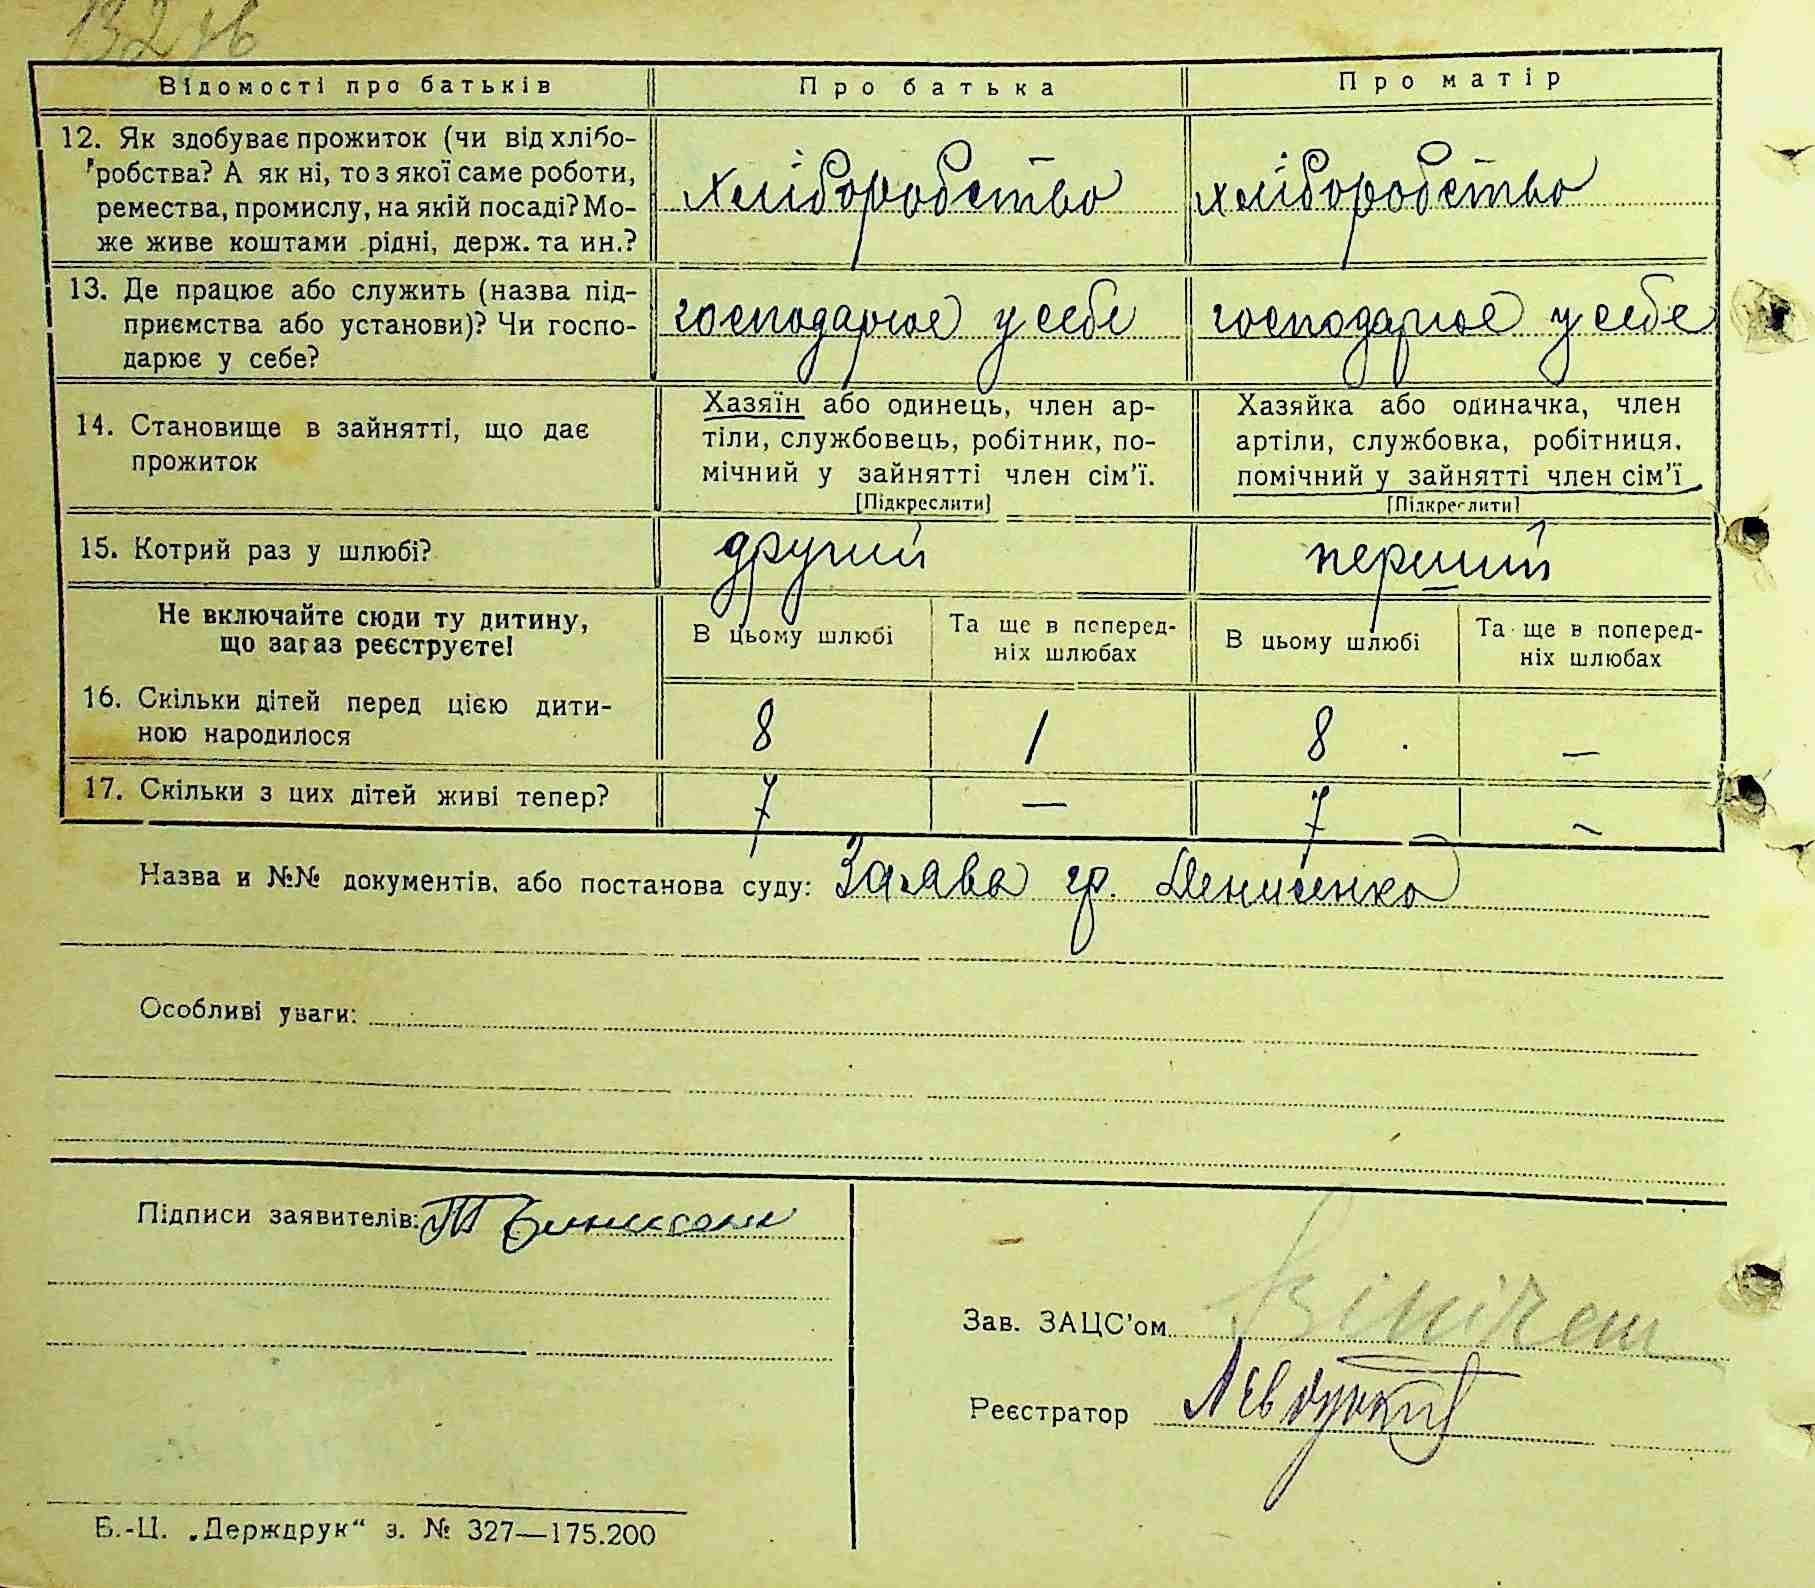 132 зв
Відомості про батьків Про батька Про матір
12. Як здобуває прожиток (чи від хлібо- хліборобство хліборобство
робства? А як ні, то з якої саме роботи,
ремества, промислу, на якій посаді? Мо-
же живе коштами рідні, держ. та ин.?
13. Де працює або служить (назва під- господарює у себе господарює у себе
приємства або установи)? Чи госпо-
дарює у себе?
14. Становище в зайнятті, що дає
прожиток
Хазяїн або одинець, член ар-
тіли, службовець, робітник, по-
мічний у зайнятті член сім'ї.
[Підкреслити]
Хазяйка або одиначка, член
артіли, службовка, робітниця,
помічний у зайнятті член сім'ї
[Підкреслити]
15. Котрий раз у шлюбі? другий перший
Не включайте сюди ту дитину,
що зараз реєструєте!
В цьому шлюбі
Та ще в поперед-
ніх шлюбах
В цьому шлюбі
Та ще в поперед-
ніх шлюбах
16. Скільки дітей перед цією дити- 8 1 8 —
ною народилося
17. Скільки з цих дітей живі тепер? 7 — 7 —
Назва и №№ документів, або постанова суду: Заява гр. Денисенко
Особливі уваги:
Підписи заявителів:
Зав. ЗАЦС'ом
Реєстратор
Б.-Ц. „Держдрук“ з. № 327—175.200